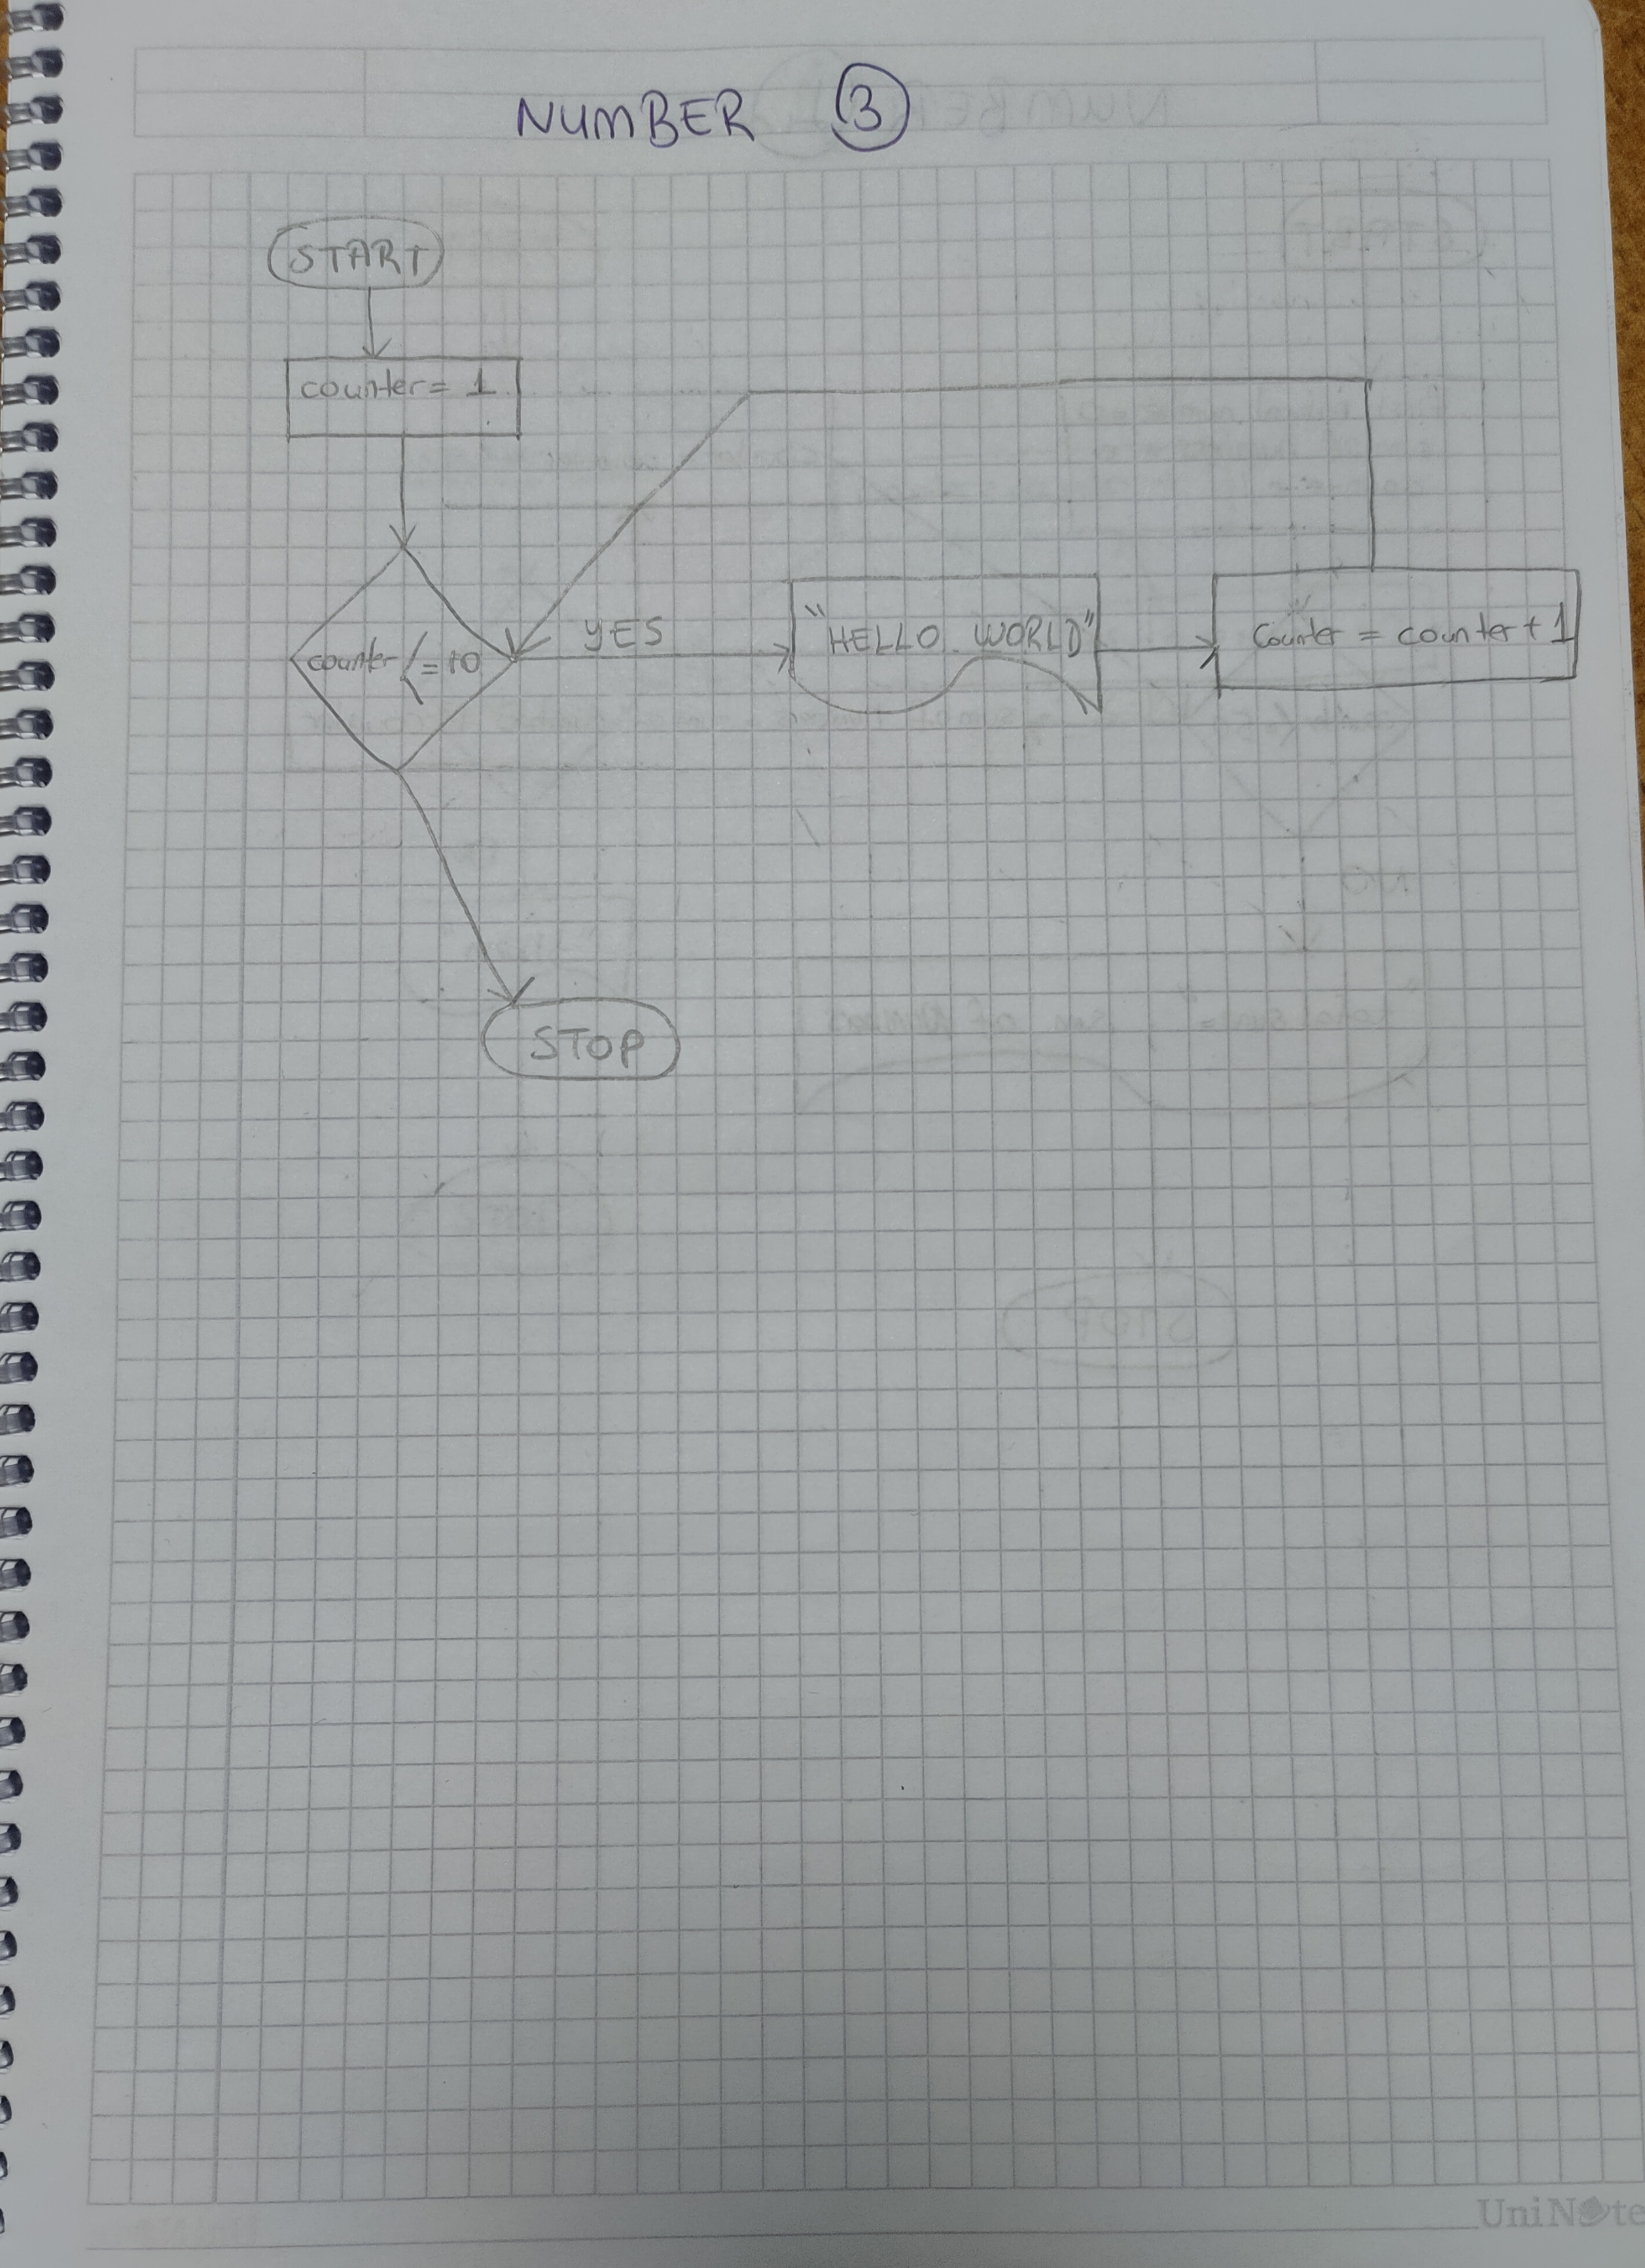 NUMBER 3
START
counter = 1
counter <= 10
YES
"HELLO WORLD"
Counter = counter + 1
STOP
UniNote